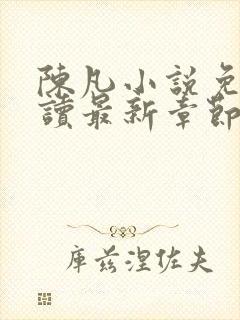 陳凡小說免
讀最新章節
庫茲涅佐夫